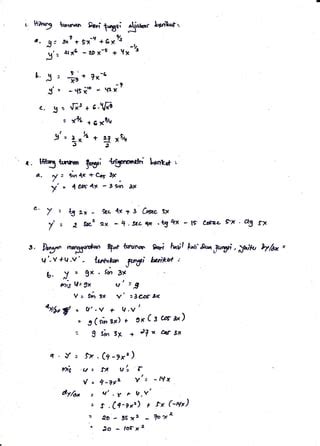 1. Hitung turunan dari fungsi aljabar berikut :
a. y = 3x⁷ + 5x⁻⁴ + 6x^⅔
y' = 21x⁶ - 20x⁻⁵ + 4x^-⅓
b. y = 5/x⁹ + 7x⁻⁶
y' = - 45x⁻¹⁰ - 42x⁻⁷
c. y = √x³ +
= x^3/2 + 6x^9/4
y' = 3/2 x^½ + 27/2 x^5/4
2. Hitung turunan fungsi trigonometri berikut :
a. y = sin 4x + Cos 3x
y' = 4 cos 4x - 3 sin 3x
c. y = tg 2x - Sec 4x + 3 Cosec 5x
y' = 2 sec² 2x - 4 . sec 4x . tg 4x - 15 cosec 5x . ctg 5x
3. Dengan menggunakan sifat turunan dari hasil kali dua fungsi , yaitu dy/dx =
u'.v + u.v' . tentukan fungsi berikut :
b. y = 9x . sin 3x
mis u = 9x u' = 9
v = sin 3x v' = 3 cos 3x
dy/dx = u' . v + u . v'
= 9 (sin 3x) + 9x ( 3 cos 3x )
= 9 sin 3x + 27x cos 3x
a. y = 5x . (4 - 7x²)
mis u = 5x u' = 5
v = 4 - 7x² v' = - 14x
dy/dx = u' . v + u . v'
= 5 . (4 - 7x²) + 5x (-14x)
= 20 - 35x² - 70x²
= 20 - 105x²